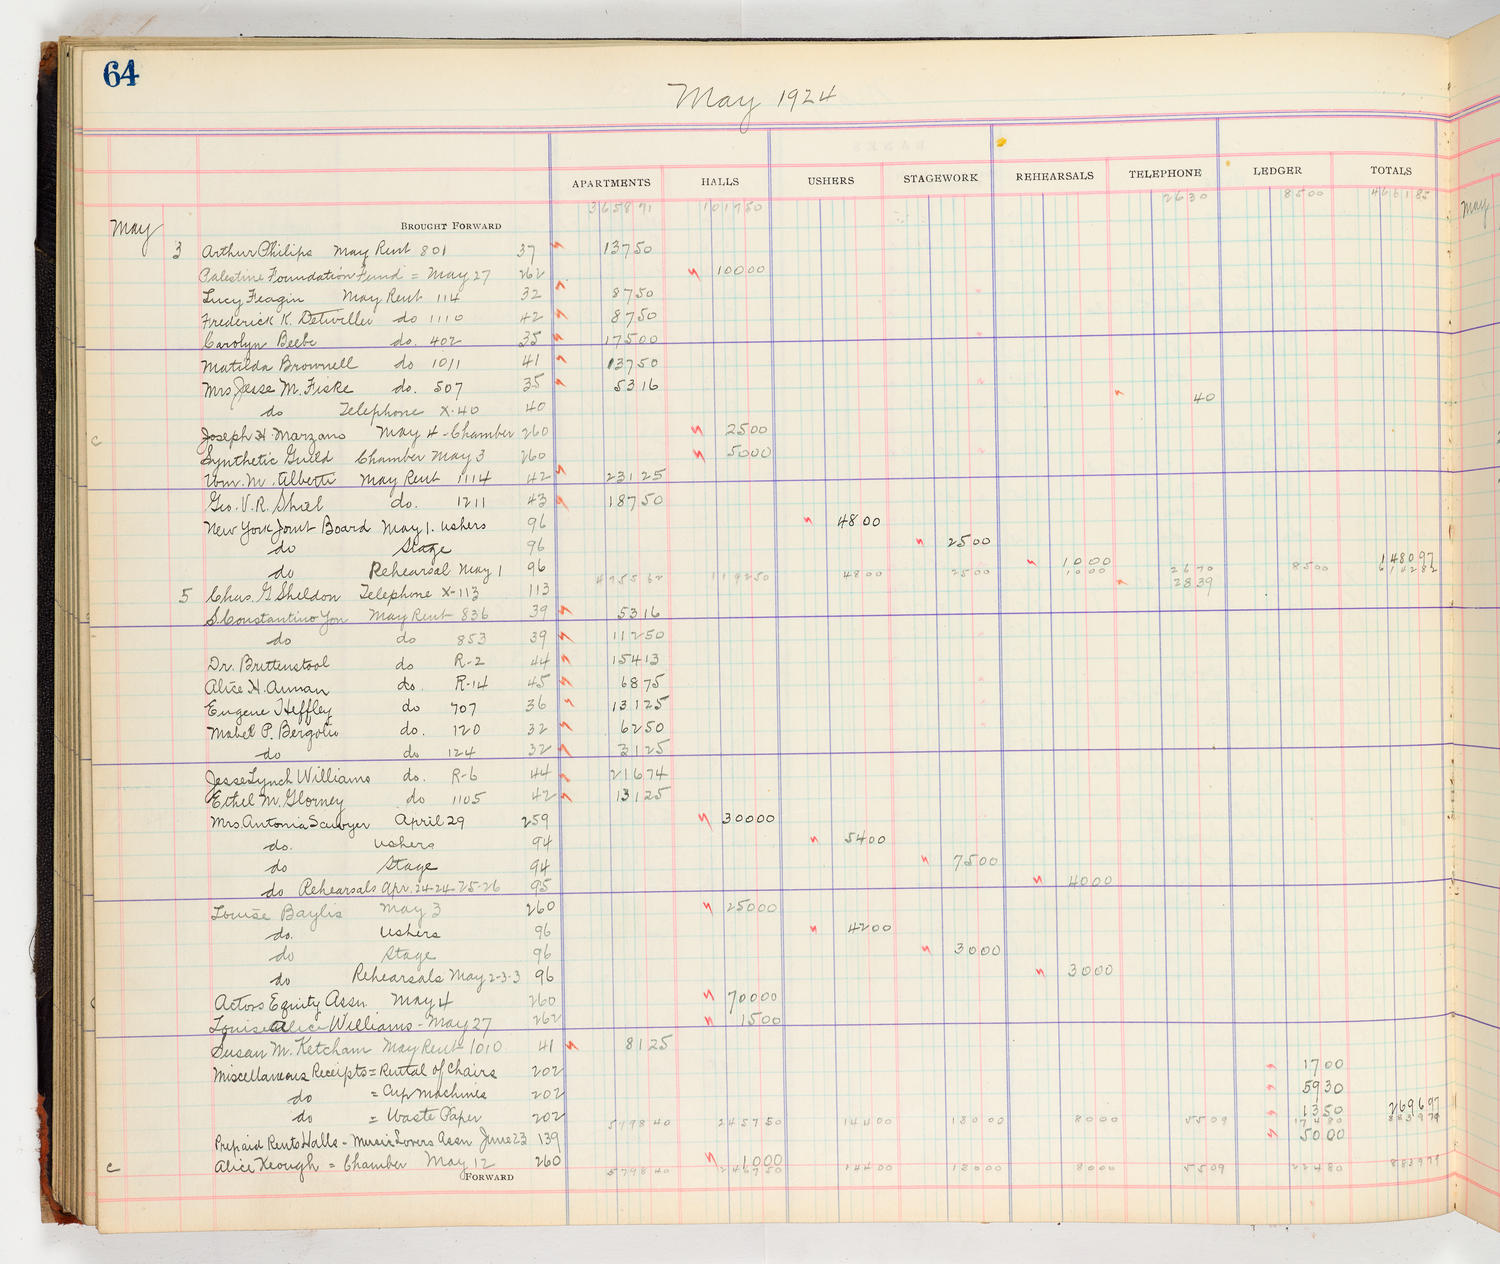 64
May 1924
APARTMENTS HALLS USHERS STAGEWORK REHEARSALS TELEPHONE LEDGER TOTALS
May BROUGHT FORWARD 365871 101750 2630 8500 466185
3 Arthur Philips May Rent 801 37 13750
Palestine Foundation Fund = May 27 262 10000
Lucy Feagin May Rent 114 32 8750
Frederick K. Detwiller do 1110 42 8750
Carolyn Beebe do. 402 35 17500
Matilda Brownell do 1011 41 13750
Mrs Jesse M. Fiske do. 507 35 5316
do Telephone X-40 40 40
c Joseph H. Marzano May 4 - Chamber 260 2500
Synthetic Guild Chamber May 3 260 5000
Wm. M. Alberti May Rent 1114 42 23125
Geo. V.R. Shiel do. 1211 43 18750
New York Joint Board May 1. ushers 96 4800
do Stage 96 2500
do Rehearsal May 1 96 1000 148097
475562 119250 4800 2500 1000 2670 8500 614282
5 Chas. G Sheldon Telephone X-113 113 2839
S. Constantino Yon May Rent 836 39 5316
do do 853 39 11250
Dr. Brittenstool do R-2 44 15413
Alice H. Annan do. R-14 45 6875
Eugene Heffley do 707 36 13125
Mabel P. Bergolio do. 120 32 6250
do do 124 32 3125
Jesse Lynch Williams do. R-6 44 21674
Ethel M. Glorney do 1105 42 13125
Mrs. Antonia Sawyer April 29 259 30000
do. ushers 94 5400
do Stage 94 7500
do Rehearsals Apr. 24-24-25-26 95 4000
Louise Baylis May 3 260 25000
do. Ushers 96 4200
do Stage 96 3000
do Rehearsals May 2-3-3 96 3000
Actors Equity Assn. May 4 260 70000
Louise Alice Williams - May 27 262 1500
Susan M. Ketcham May Rent 1010 41 8125
Miscellaneous Receipts = Rental of Chairs 202 1700
do = Cup machines 202 5930
do = Waste Paper 202 1350 269697
579840 245750 14400 13000 8000 5509 17480 883979
Prepaid Rents Halls - Music Lovers Assn June 23 139 5000
c Alice Keough = Chamber May 12 260 1000
FORWARD 579840 246750 14400 13000 8000 5509 22480
May